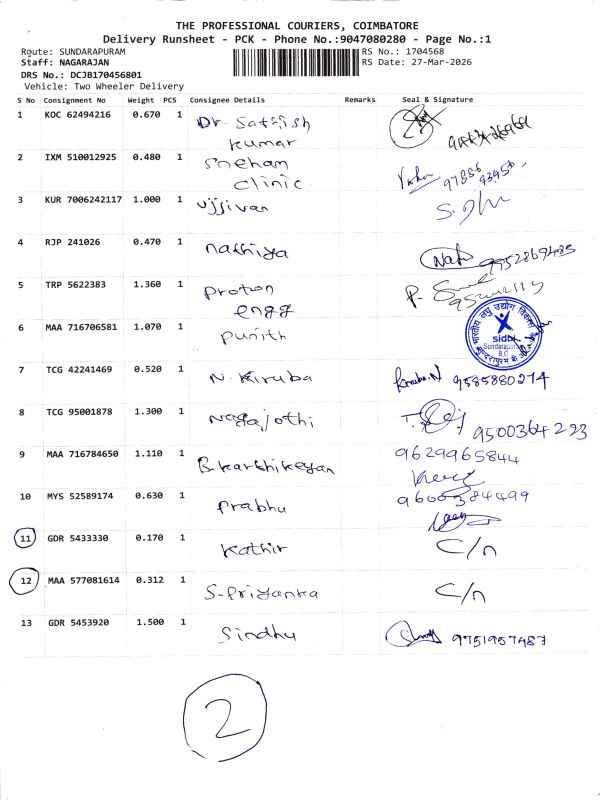 THE PROFESSIONAL COURIERS, COIMBATORE
Delivery Runsheet - PCK - Phone No.:9047080280 - Page No.:1
Route: SUNDARAPURAM RS No.: 1704568
Staff: NAGARAJAN RS Date: 27-Mar-2026
DRS No.: DCJB170456801
Vehicle: Two Wheeler Delivery
S No Consignment No Weight PCS Consignee Details Remarks Seal & Signature
1 KOC 62494216 0.670 1 Dr. Sathish
kumar
2 IXM 510012925 0.480 1 Sneham
clinic
3 KUR 7006242117 1.000 1 Ujjivan
4 RJP 241026 0.470 1 nathiya
5 TRP 5622383 1.360 1 Proton
engg
6 MAA 716706581 1.070 1 Punith
sidbi
Sundarapuram
B.O
7 TCG 42241469 0.520 1 N. Kiruba 9585880274
8 TCG 95001878 1.300 1 Nagajothi
9500364293
9 MAA 716784650 1.110 1 B karthikeyan 9629965844
10 MYS 52589174 0.630 1 Prabhu 9600384499
11 GDR 5433330 0.170 1 Kathir C/n
12 MAA 577081614 0.312 1 S. Priyanka C/n
13 GDR 5453920 1.500 1 Sindhu 9751957487
2